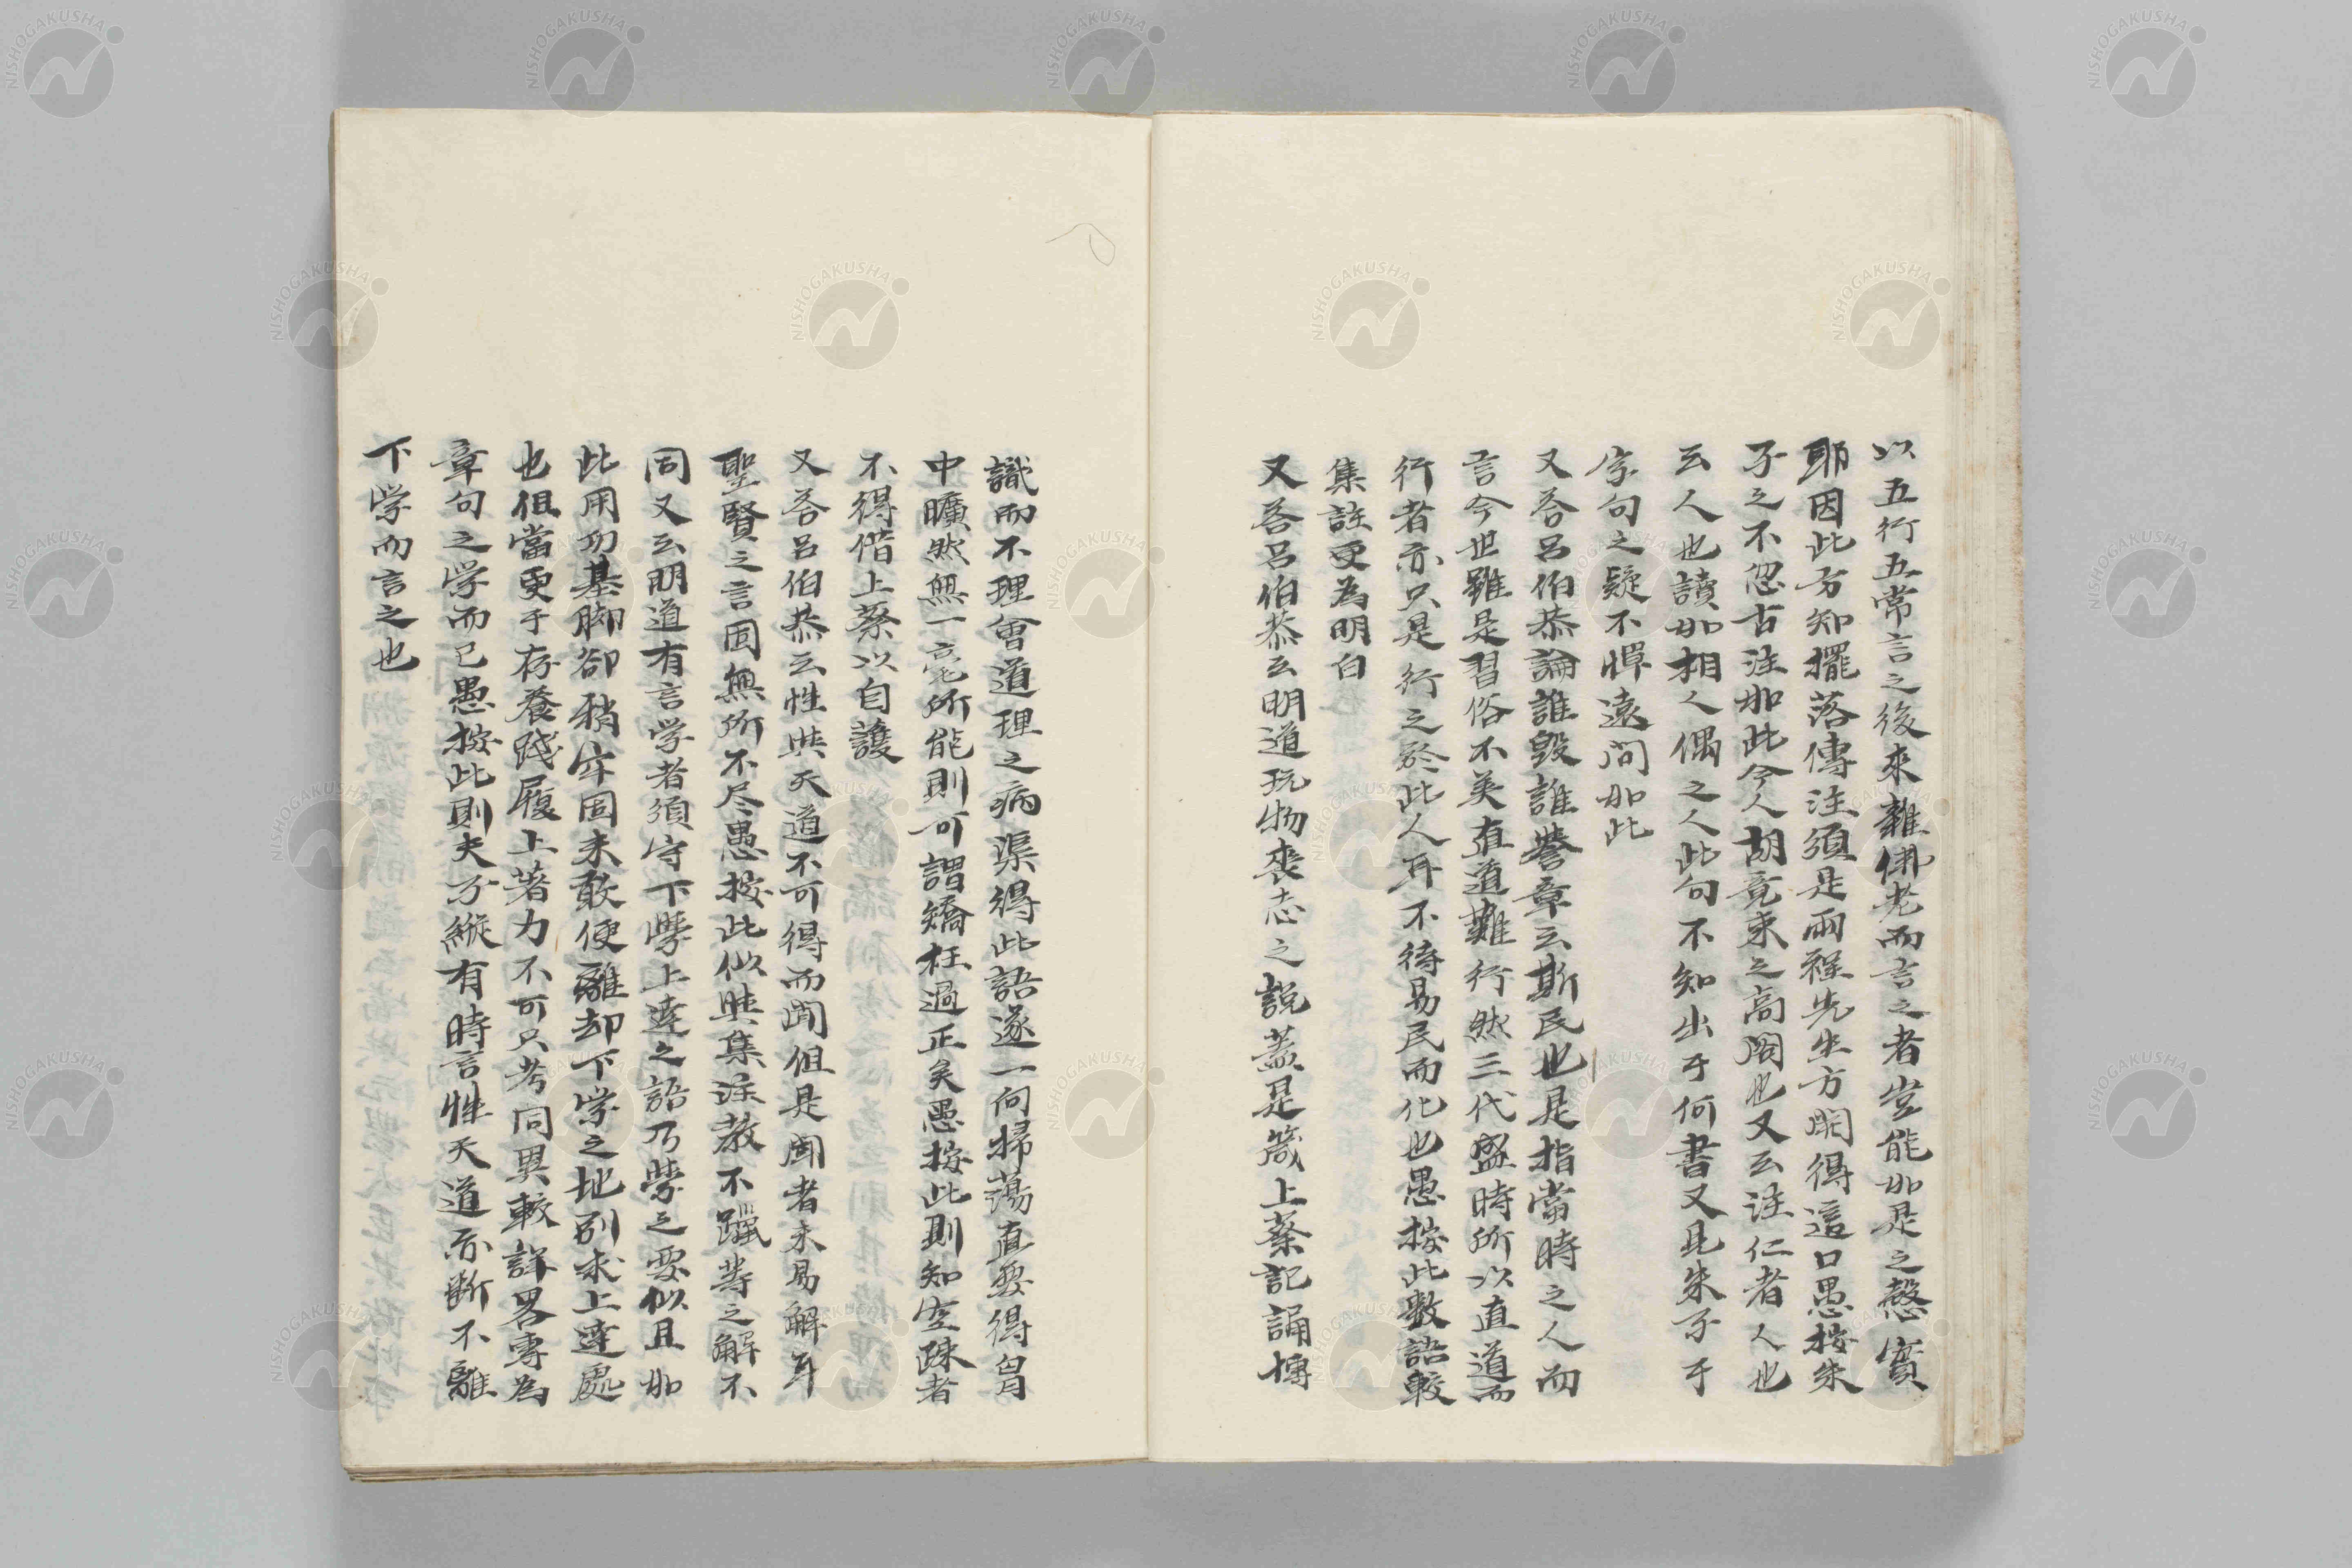 以五行五常言之後來雜佛老而言之者豈能如是之慤實
耶因此方知擺落傳注須是兩程先生方開得這口愚按朱
子之不忽古注如此今人胡竟束之高閣也又云注仁者人也
云人也讀如相人偶之人此句不知出于何書又見朱子于
字句之疑不憚遠問如此
又答呂伯恭論誰毀誰譽章云斯民也是指當時之人而
言今世雖是習俗不美直道難行然三代盛時所以直道而
行者亦只是行之於此人耳不待易民而化也愚按此數語較
集註更為明白
又答呂伯恭云明道玩物喪志之說蓋是箴上蔡記誦博
識而不理會道理之病渠得此語遂一向掃蕩直要得胷
中曠然無一毫所能則可謂矯枉過正矣愚按此則知空疎者
不得借上蔡以自護
又答呂伯恭云性與天道不可得而聞但是聞者未易解耳
聖賢之言固無所不尽愚按此似與集注教不躐等之解不
同又云明道有言学者須守下學上達之語乃學之要似且如
此用功基脚卻稍牢固未敢便離却下学之地别求上達處
也但當更于存養踐履上著力不可只考同異較詳畧專為
章句之学而已愚按此則夫子縱有時言性天道亦斷不離
下学而言之也
NISHOGAKUSHA